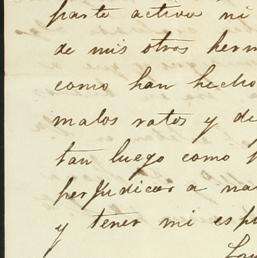 parte activa ni
de mis otros herm
como han hecho
malos ratos y de
tan luego como
perjudicar a na
y tener mi esp